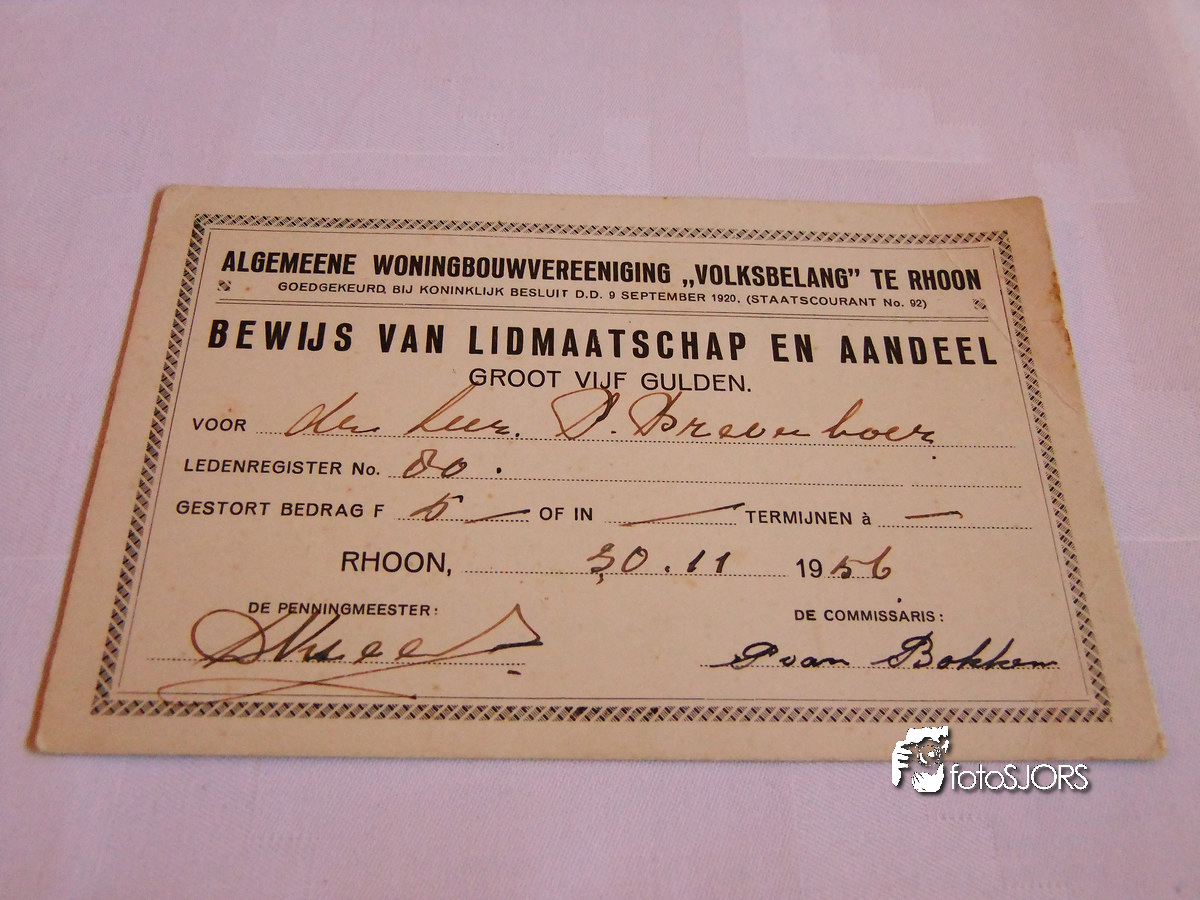 ALGEMEENE WONINGBOUWVEREENIGING „VOLKSBELANG” TE RHOON
GOEDGEKEURD BIJ KONINKLIJK BESLUIT D.D. 9 SEPTEMBER 1920. (STAATSCOURANT No. 92)
BEWIJS VAN LIDMAATSCHAP EN AANDEEL
GROOT VIJF GULDEN.
VOOR den heer. P. Brevenboer
LEDENREGISTER No. 80.
GESTORT BEDRAG F 5 — OF IN — TERMIJNEN à —
RHOON, 30.11 1956
DE PENNINGMEESTER: DE COMMISSARIS:
P van Bokkem
fotoSJORS